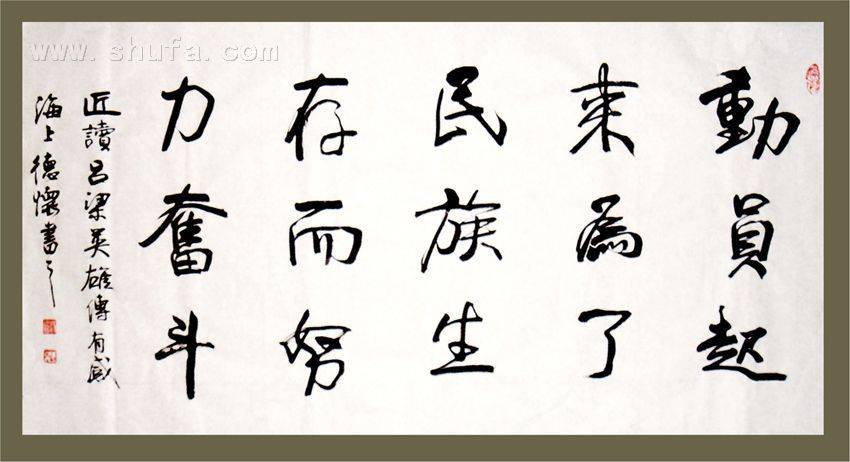 動員起
来為了
民族生
存而努
力奮斗
近讀吕梁英雄傳有感
海上德懷書之
www.shufa.com